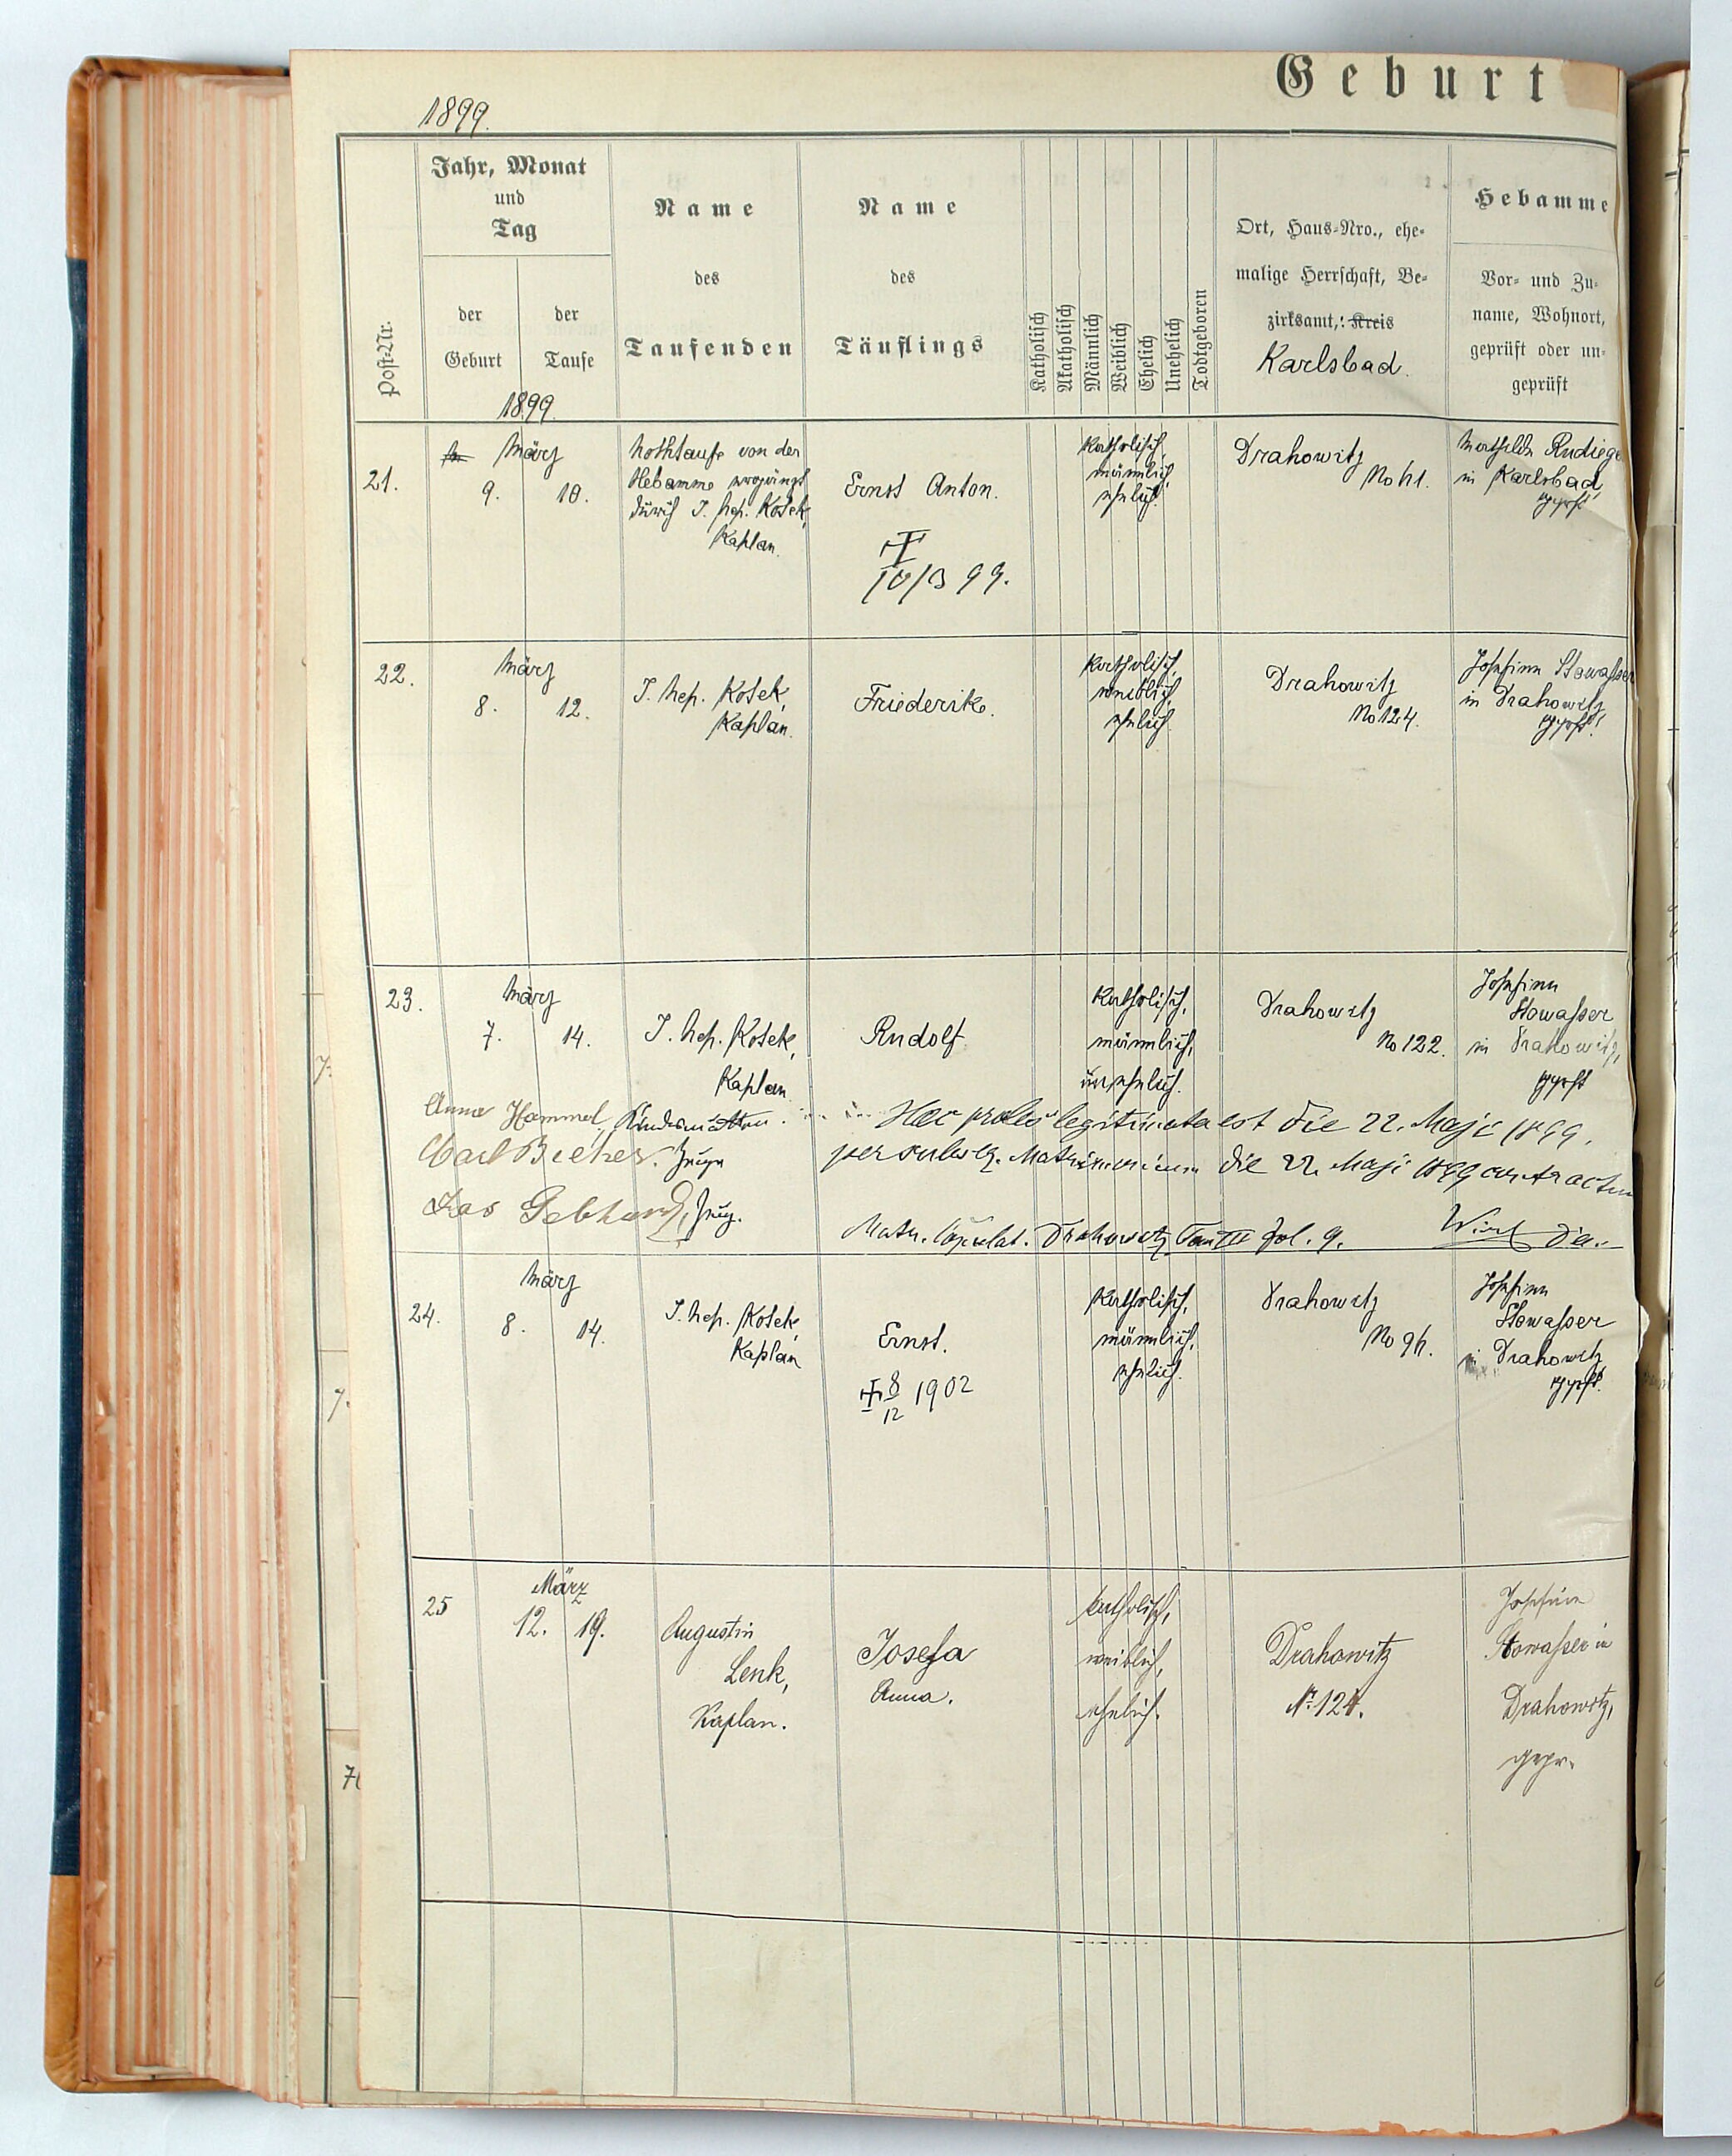 Geburt
1899.
Jahr, Monat
und
Tag
der
Geburt
der
Taufe
1899.
Post-Nr.
Name
des
Taufenden
Name
des
Täuflings
Katholisch
Akatholisch
Männlich
Weiblich
Ehelich
Unehelich
Todtgeboren
Ort, Haus-Nro., ehe-
malige Herrschaft, Be-
zirksamt, Kreis
Karlsbad.
Hebamme
Vor- und Zu-
name, Wohnort,
geprüft oder un-
geprüft
21.
März
9. 10.
Nothtaufe von der
Hebamme ergänzt
durch J. Nep. Kosek,
Kaplan.
Ernst Anton.
10/3 99.
katholisch,
männlich,
ehelich.
Drahowitz
No 61.
Mathilde Rudige
in Karlsbad,
geprft
22.
März
8. 12.
J. Nep. Kosek,
Kaplan.
Friederike.
Katholisch,
weiblich,
ehelich.
Drahowitz
No 124.
Josefine Stowasser
in Drahowitz
geprft.
23.
März
7. 14.
J. Nep. Kosek,
Kaplan.
Rudolf
Katholisch,
männlich,
unehelich.
Drahowitz
No 122.
Josefine
Stowasser
in Drahowitz,
geprft
Anna Hammel, Kindesmutter.
Carl Zeuge
Gebhard, Zeug.
Haec proles legitimata est die 22. Maji 1899.
per subseq. Matrimonium die 22. Maji 1899 contractum
Matr. Copulat. Drahowitz Tom III fol. 9.
24.
März
8. 14.
J. Nep. Kosek,
Kaplan
Ernst.
8/12 1902
Katholisch,
männlich,
ehelich.
Drahowitz
No 96.
Josefine
Stowasser
in Drahowitz
geprft.
25
März
12. 19.
Augustin
Lenk,
Kaplan.
Josefa
Anna.
katholisch,
weiblich,
ehelich.
Drahowitz
Nr. 124.
Josefine
Stowasser in
Drahowitz,
gepr.